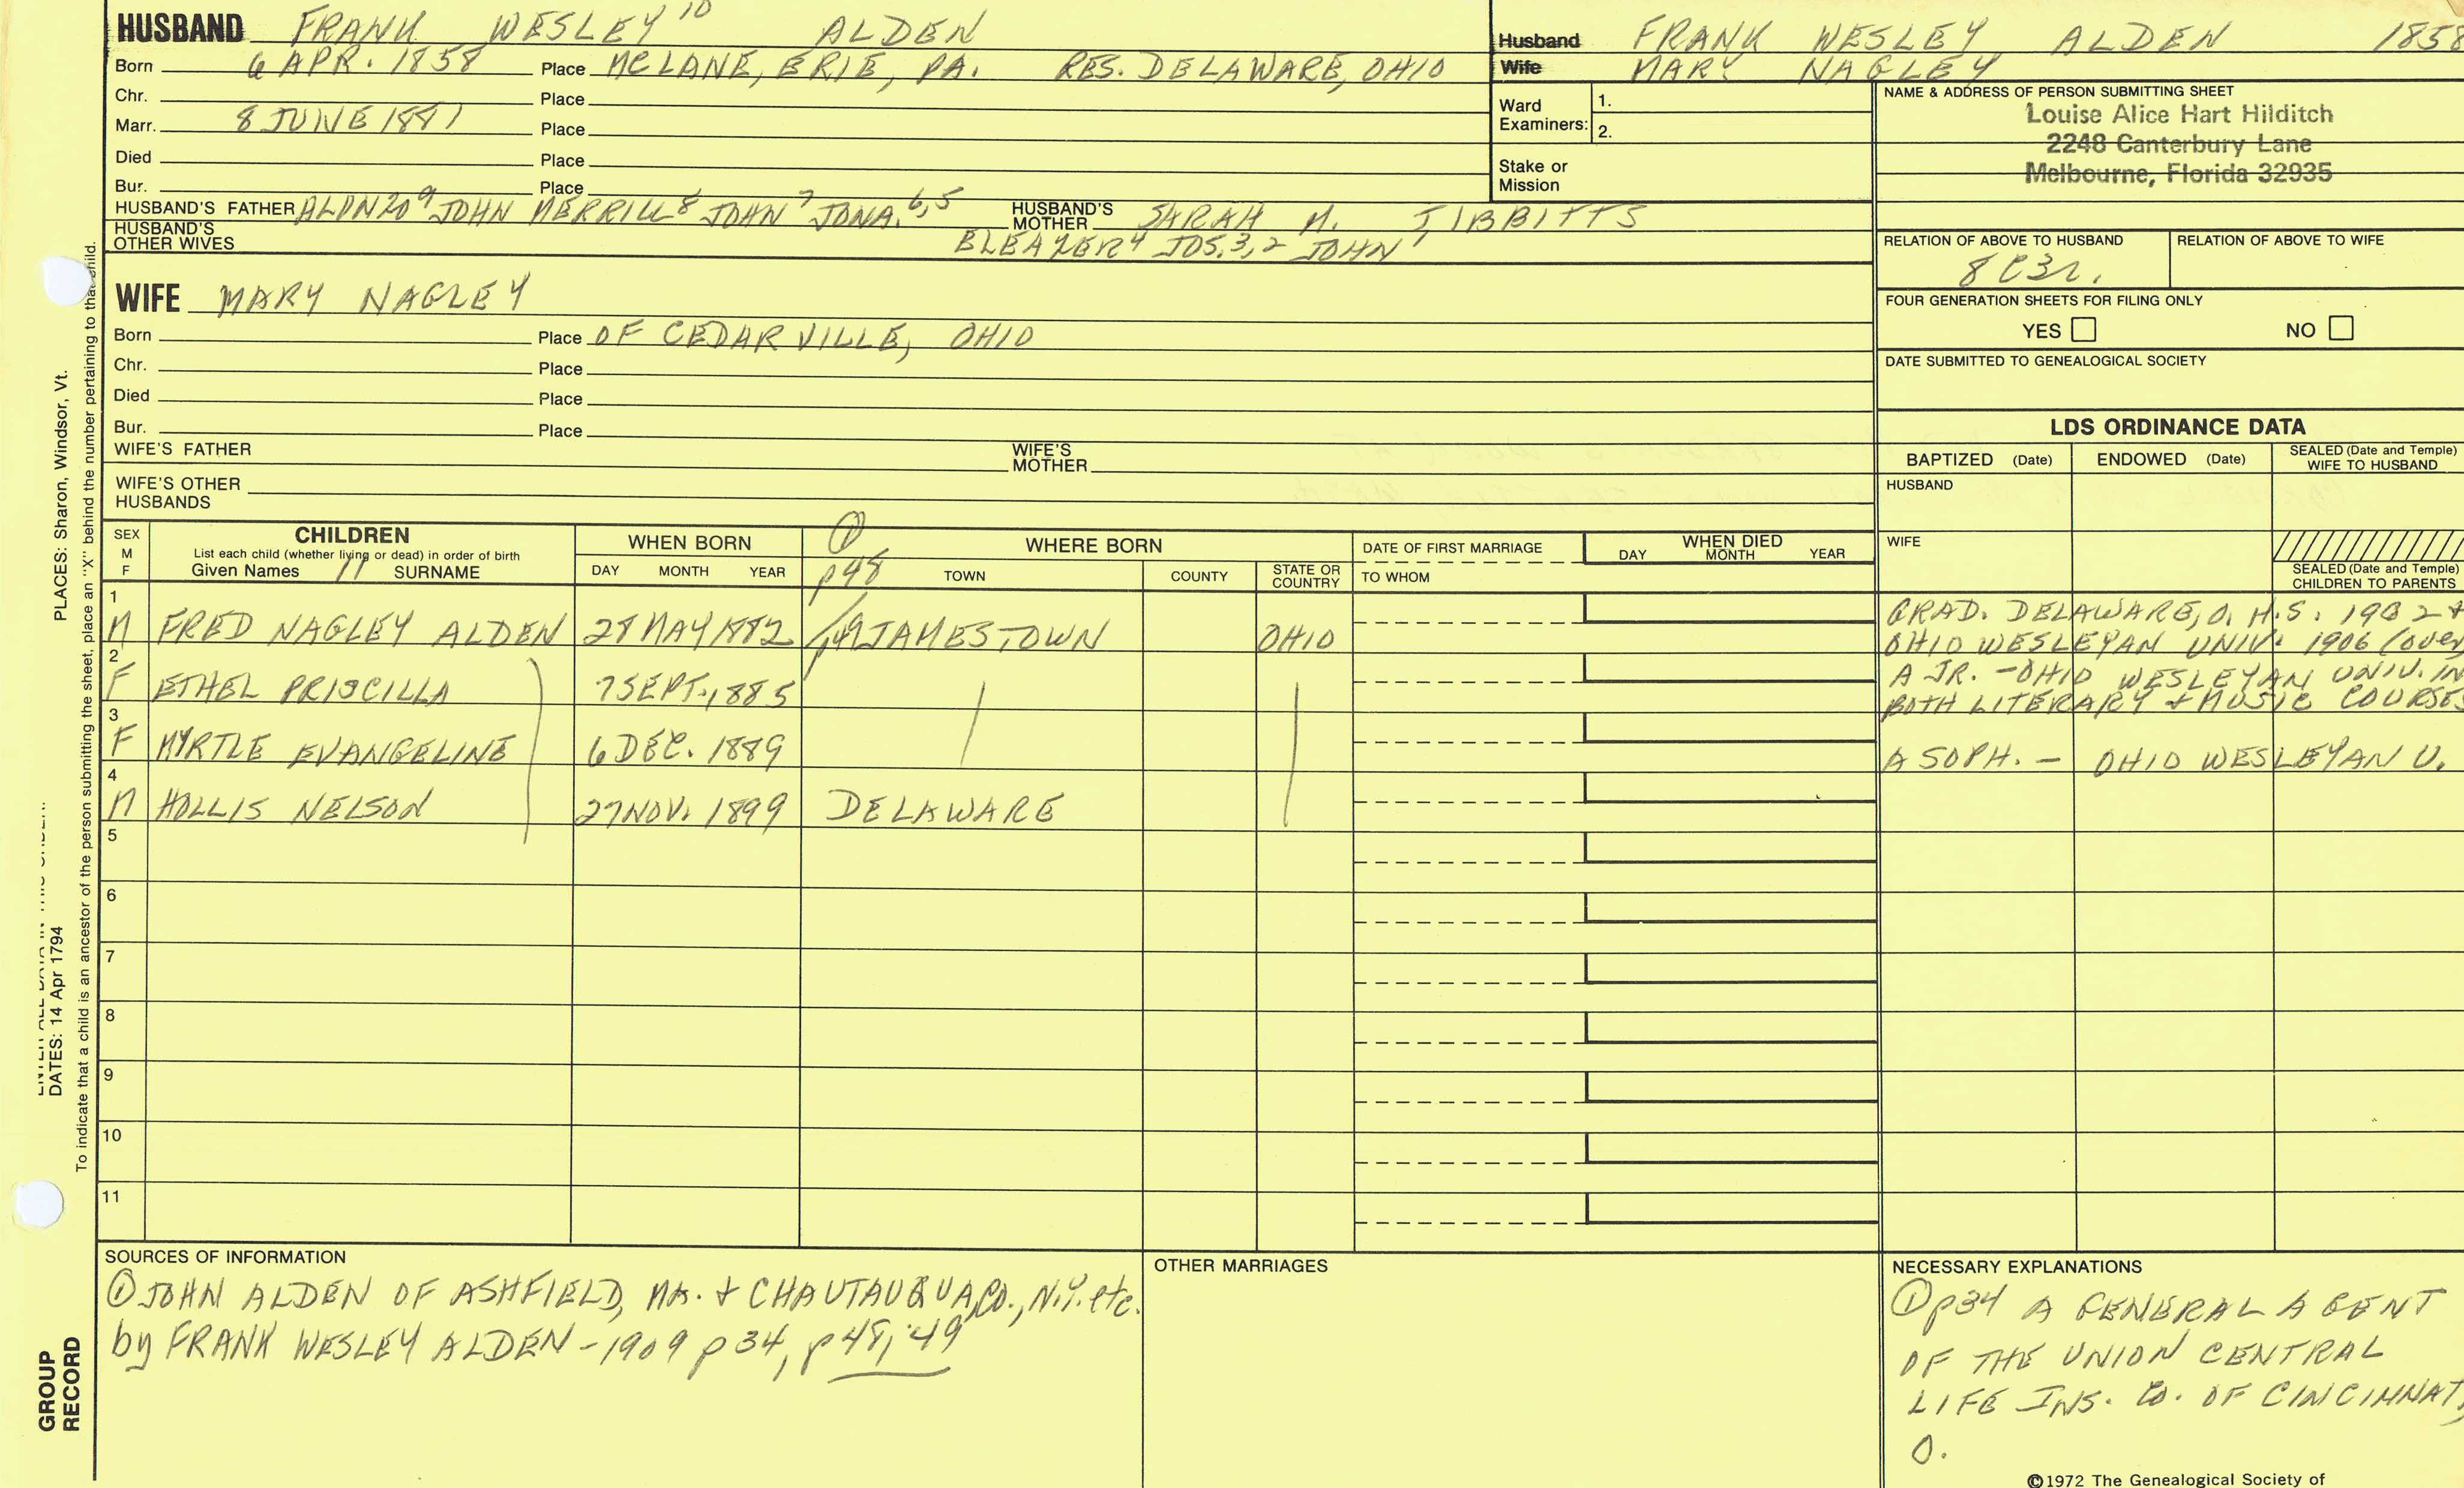 HUSBAND FRANK WESLEY 10 ALDEN
Born 6 APR. 1858 Place MCLANE, ERIE, PA. RES. DELAWARE, OHIO
Chr. Place
Marr. 8 JUNE 1881 Place
Died Place
Bur. Place
HUSBAND'S FATHER ALONZO 9 JOHN MERRILL 8 JOHN 7 JONA. 6,5 HUSBAND'S MOTHER SARAH M. TIBBITTS
HUSBAND'S OTHER WIVES ELEAZER 4 JOS. 3,2 JOHN 1
Husband FRANK WESLEY ALDEN 1858
Wife MARY NAGLEY
Ward Examiners: 1.
2.
Stake or Mission
NAME & ADDRESS OF PERSON SUBMITTING SHEET
Louise Alice Hart Hilditch
2248 Canterbury Lane
Melbourne, Florida 32935
RELATION OF ABOVE TO HUSBAND RELATION OF ABOVE TO WIFE
8C3r.
FOUR GENERATION SHEETS FOR FILING ONLY
YES NO
DATE SUBMITTED TO GENEALOGICAL SOCIETY
WIFE MARY NAGLEY
Born Place OF CEDARVILLE, OHIO
Chr. Place
Died Place
Bur. Place
WIFE'S FATHER WIFE'S MOTHER
WIFE'S OTHER HUSBANDS
LDS ORDINANCE DATA
BAPTIZED (Date) ENDOWED (Date) SEALED (Date and Temple) WIFE TO HUSBAND
HUSBAND
WIFE
SEALED (Date and Temple) CHILDREN TO PARENTS
SEX M F
CHILDREN
List each child (whether living or dead) in order of birth
Given Names 11 SURNAME
WHEN BORN
DAY MONTH YEAR
① p48
WHERE BORN
TOWN COUNTY STATE OR COUNTRY
DATE OF FIRST MARRIAGE
TO WHOM
WHEN DIED
DAY MONTH YEAR
1 M FRED NAGLEY ALDEN 28 MAY 1882 /,49 JAMESTOWN OHIO GRAD. DELAWARE, O. H.S. 1902 +
OHIO WESLEYAN UNIV. 1906 (over
2 F ETHEL PRISCILLA 7 SEPT. 1885 A JR. - OHIO WESLEYAN UNIV. IN
BOTH LITERARY + MUSIC COURSES
3 F MYRTLE EVANGELINE 6 DEC. 1889 A SOPH. - OHIO WESLEYAN U.
4 M HOLLIS NELSON 27 NOV. 1899 DELAWARE
5
6
7
8
9
10
11
SOURCES OF INFORMATION
① JOHN ALDEN OF ASHFIELD, MA. + CHAUTAUQUA, CO., N.Y. etc.
by FRANK WESLEY ALDEN - 1909 p 34, p 48, 49
OTHER MARRIAGES
NECESSARY EXPLANATIONS
① p34 A GENERAL AGENT
OF THE UNION CENTRAL
LIFE INS. CO. OF CINCINNATI,
O.
©1972 The Genealogical Society of
PLACES: Sharon, Windsor, Vt.
DATES: 14 Apr 1794
To indicate that a child is an ancestor of the person submitting the sheet, place an "X" behind the number pertaining to that child.
GROUP RECORD